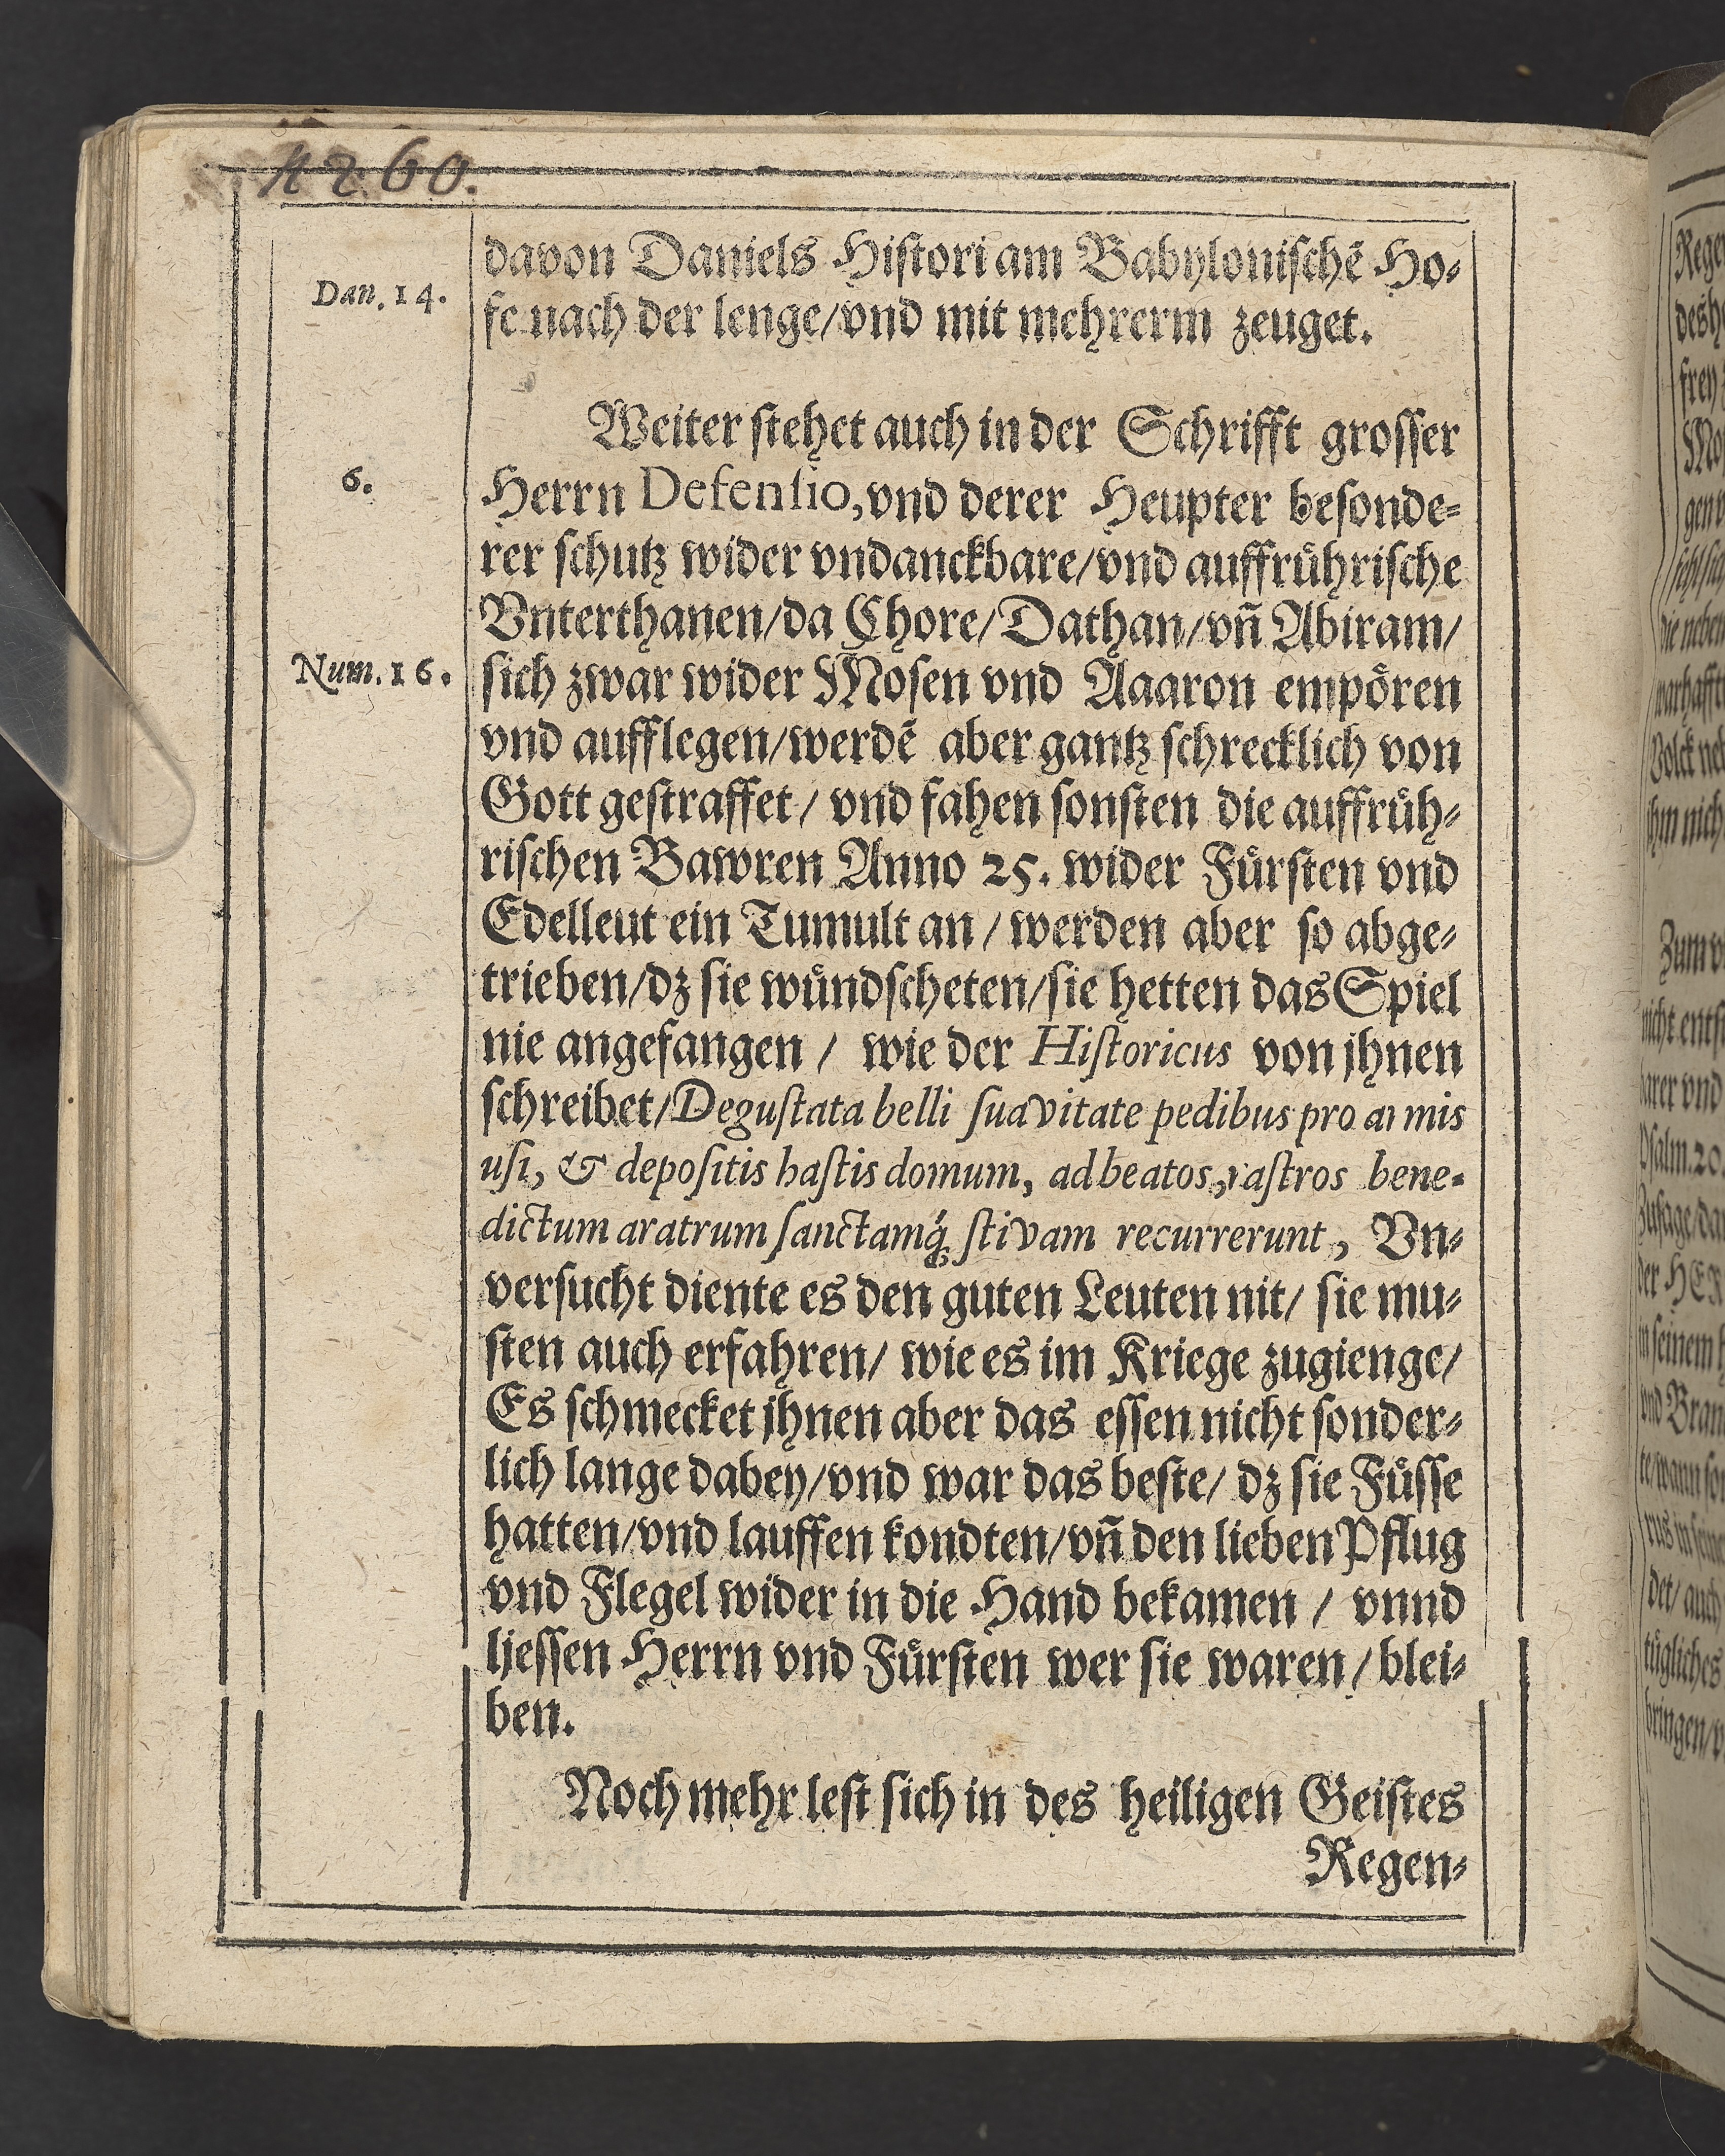 4260.
davon Daniels Hiſtori am Babyloniſchē Ho⸗
Dan. 14.
fe nach der lenge/vnd mit mehrerm zeuget.
Weiter ſtehet auch in der Schrifft groſſer
6.
Herrn Defenſio, vnd derer Heupter beſonde⸗
rer ſchutz wider vndanckbare/vnd auffrůhriſche
Vnterthanen/da Chore/Dathan/vn̄ Abiram/
Num. 16.
ſich zwar wider Moſen vnd Aaaron empören
vnd aufflegen/werdē aber gantz ſchrecklich von
Gott geſtraffet/ vnd fahen ſonſten die auffrůh⸗
riſchen Bawren Anno 25. wider Fůrſten vnd
Edelleut ein Tumult an / werden aber ſo abge⸗
trieben/dz ſie wůndſcheten/ſie hetten das Spiel
nie angefangen / wie der Hiſtoricus von jhnen
ſchreibet/Deguſtata belli ſuavitate pedibus pro armis
uſi, & depoſitis haſtis domum, ad beatos, raſtros bene⸗
dictum aratrum ſanctamq́ꝫ ſtivam recurrerunt, Vn⸗
verſucht diente es den guten Leuten nit/ ſie mu⸗
ſten auch erfahren/ wie es im Kriege zugienge/
Es ſchmecket jhnen aber das eſſen nicht ſonder⸗
lich lange dabey/vnd war das beſte/ dz ſie Fůſſe
hatten/vnd lauffen kondten/vn̄ den lieben Pflug
vnd Flegel wider in die Hand bekamen / vnnd
lieſſen Herrn vnd Fůrſten wer ſie waren / blei⸗
ben.
Noch mehr leſt ſich in des heiligen Geiſtes
Regen⸗